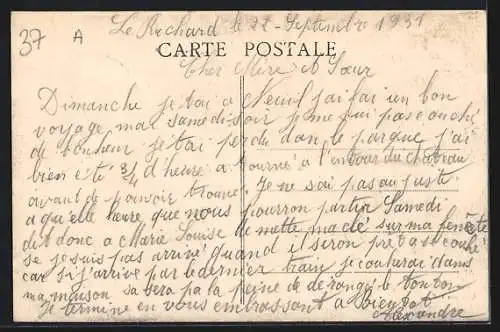 37 A
Le Ruchard le 22 - Septembre 1931
CARTE POSTALE
Cher Mère et Sœur
Dimanche je tai a Neuil jai fai un bon
voyage mai samedi soir je me sui pas couché
de bonheur je tai perdu dan le parque j'ai
bien eté 3/4 d'heure a tourné a l'entour du chateau
avant de pouvoir trouvé. Je ne sai pas au juste
a qu'elle heure que nous pourron partir Samedi
dit donc a Marie Louise de mettre ma clé sur ma fenètre
se je suis pas arrivé quand il seron prèt a se couché
car si j'arrive par le dernier train je coucherai dans
ma maison sa sera pa la peine de dérangé le tonton
Je termine en vous embrassant a Bientot
Alexandre